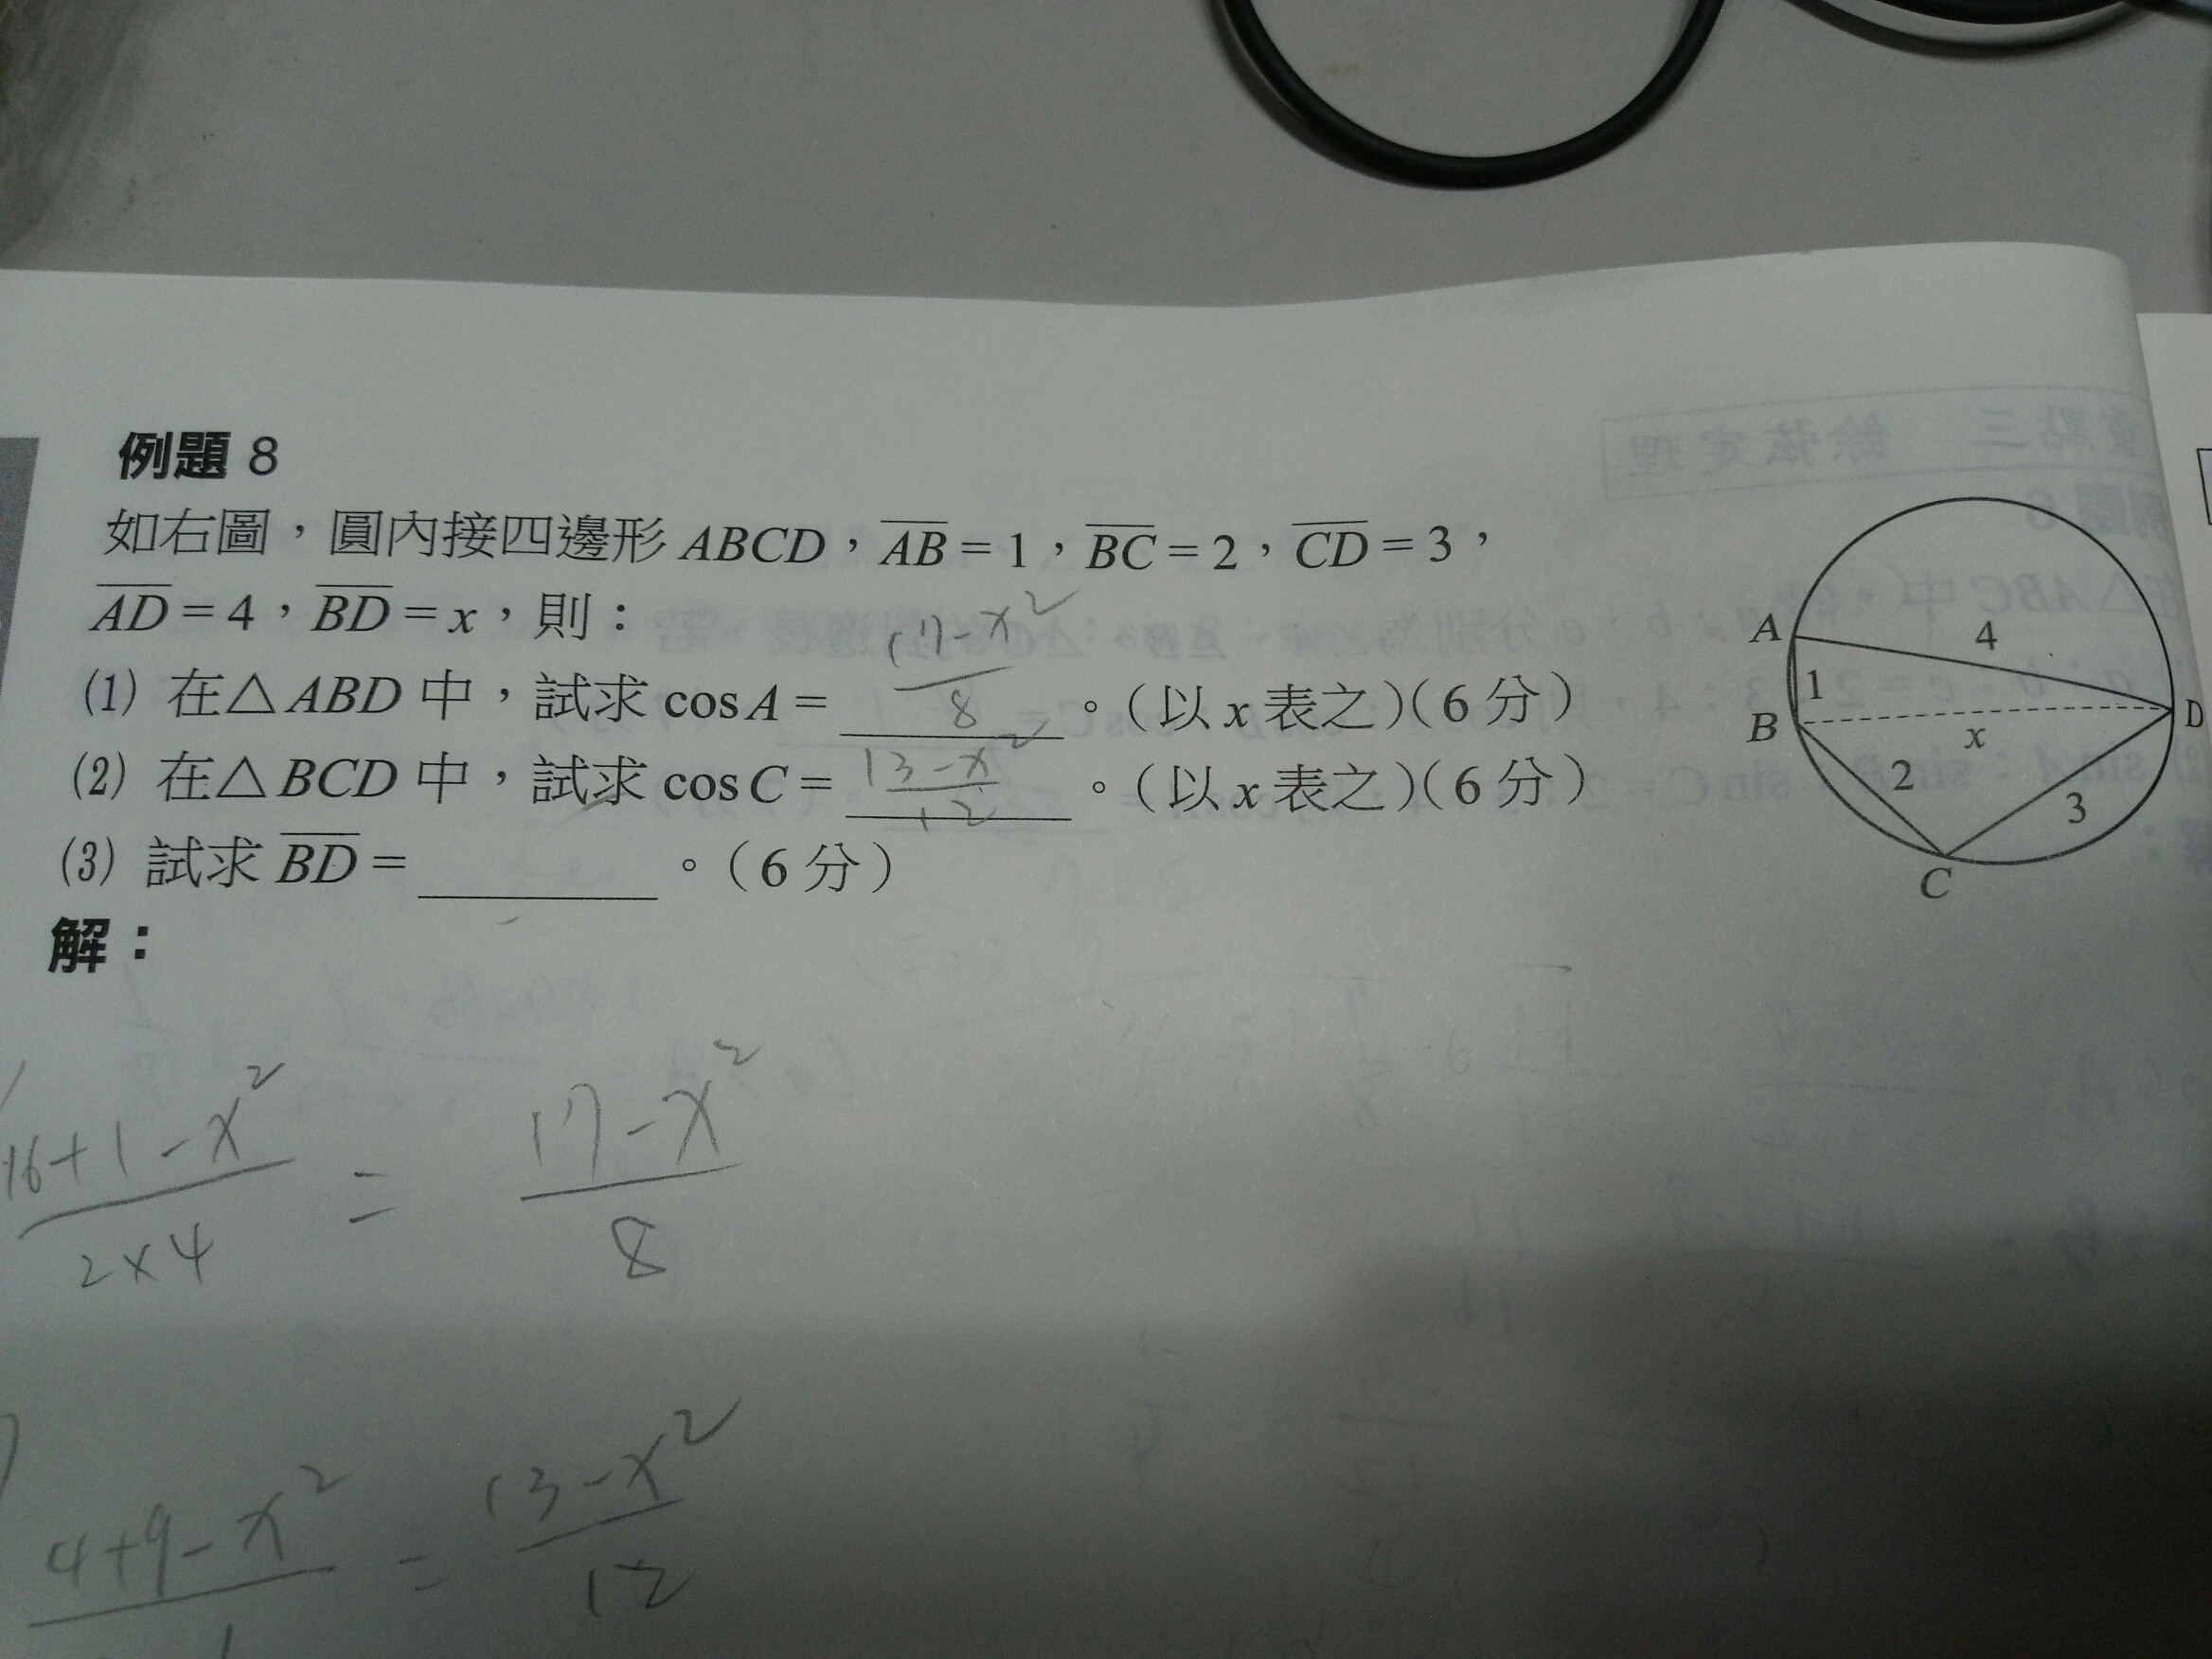 例題 8
如右圖，圓內接四邊形 ABCD，AB = 1，BC = 2，CD = 3，
AD = 4，BD = x，則：
(1) 在△ABD 中，試求 cos A = 17-x²/8 。（以 x 表之）（6 分）
(2) 在△BCD 中，試求 cos C = 13-x²/12 。（以 x 表之）（6 分）
(3) 試求 BD = ＿＿＿＿ 。（6 分）
解：
A
4
1
B
x
D
2
3
C
16+1-x²/2×4 = 17-x²/8
4+9-x² = 13-x²/12